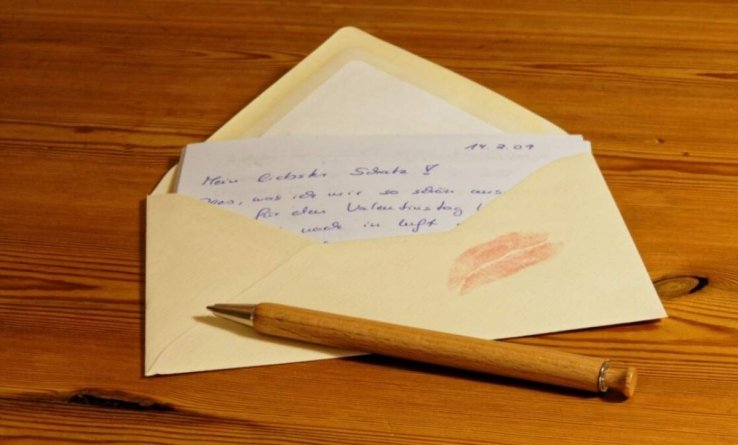 14.2.01
Mein liebster Schatz !
was ich mir so schön aus
für den Valentinstag
noch in